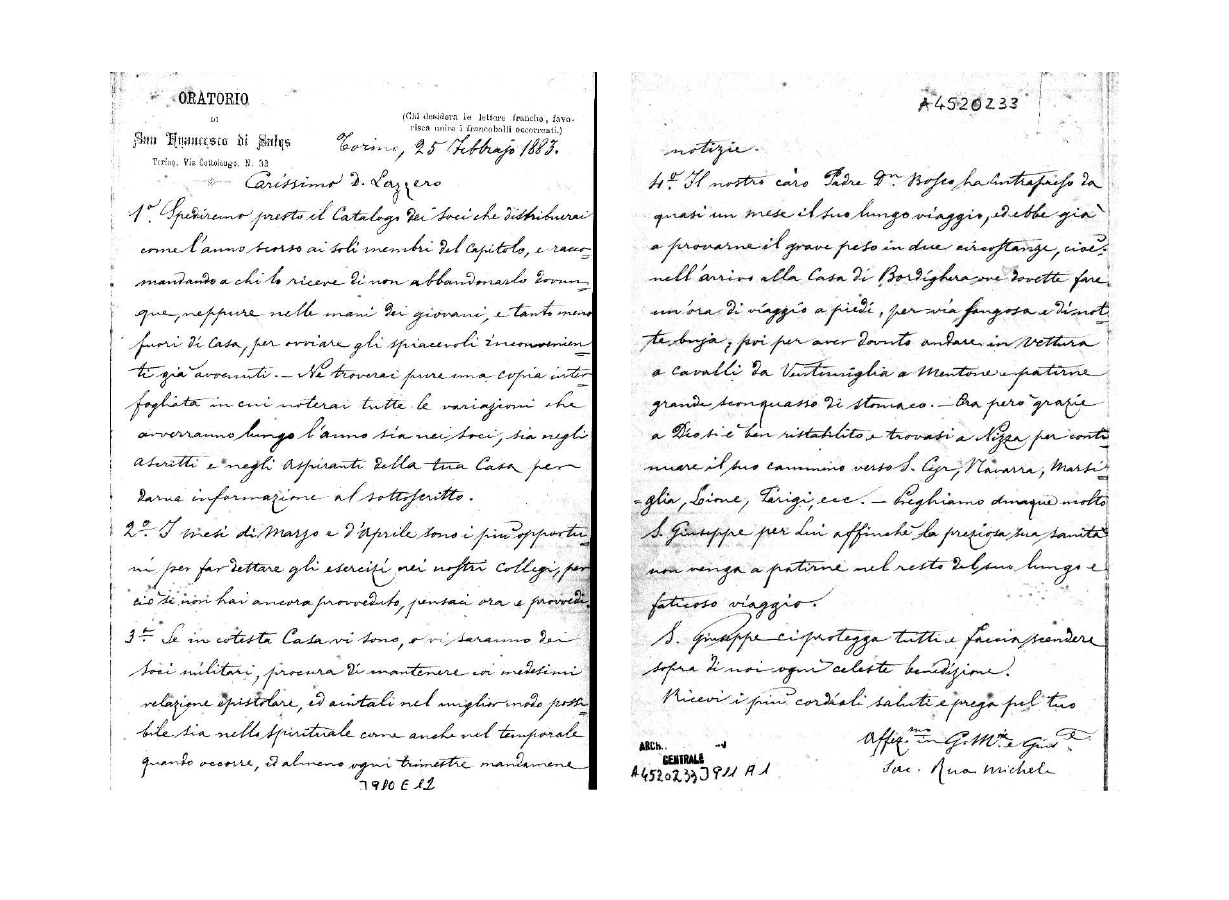 ORATORIO
DI
San Francesco di Sales
Torino, Via Cottolengo, N. 32
(Chi desidera le lettere franche, favo-
risca unire i francobolli occorrenti.)
Torino, 25 Febbrajo 1883.
Carissimo D. Lazzero
1º Spediremo presto il Catalogo dei soci che distribuirai
come l'anno scorso ai soli membri del Capitolo, e racco=
mandando a chi lo riceve di non abbandonarlo dovun=
que, neppure nelle mani dei giovani, e tanto meno
fuori di Casa, per ovviare gli spiacevoli inconvenien=
ti già avvenuti. — Ne troverai pure una copia inter
fogliata in cui noterai tutte le variazioni che
avverranno lungo l'anno sia nei soci, sia negli
ascritti e negli aspiranti della tua Casa per
darne informazione al sottoscritto.
2º I mesi di Marzo e d'Aprile sono i più opportu=
ni per far dettare gli esercizi nei nostri Collegi, per
ciò se non hai ancora provveduto, pensaci ora e provvedi.
3º Se in cotesta Casa vi sono, o vi saranno dei
soci militari, procura di mantenere coi medesimi
relazione epistolare, ed aiutali nel miglior modo possi=
bile sia nello spirituale come anche nel temporale
quando occorre, ed almeno ogni trimestre mandamene
3980 E 12
A4520233
notizie.
4º Il nostro caro Padre Dn. Bosco ha intrapreso da
quasi un mese il suo lungo viaggio, ed ebbe già
a provarne il grave peso in due circostanze, cioè:
nell'arrivo alla Casa di Bordighera ove dovette fare
un'ora di viaggio a piedi, per via fangosa e di not=
te buja; poi per aver dovuto andare in vettura
a cavalli da Ventimiglia a Mentone e patirne
grande sconquasso di stomaco. — Ora però grazie
a Dio si è ben ristabilito e trovasi a Nizza per conti
nuare il suo cammino verso S. Cyr, Navarra, Marsi
=glia, Lione, Parigi, ecc. — Preghiamo dunque molto
S. Giuseppe per lui affinchè la preziosa sua sanità
non venga a patirne nel resto del suo lungo e
faticoso viaggio.
S. Giuseppe ci protegga tutti e faccia scendere
sopra di noi ogni celeste benedizione.
Ricevi i più cordiali saluti e prega pel tuo
Affez.mo in G. M. e Gius.e
Sac. Rua Michele
ARCH.
CENTRALE
A4520233 3911 A 1